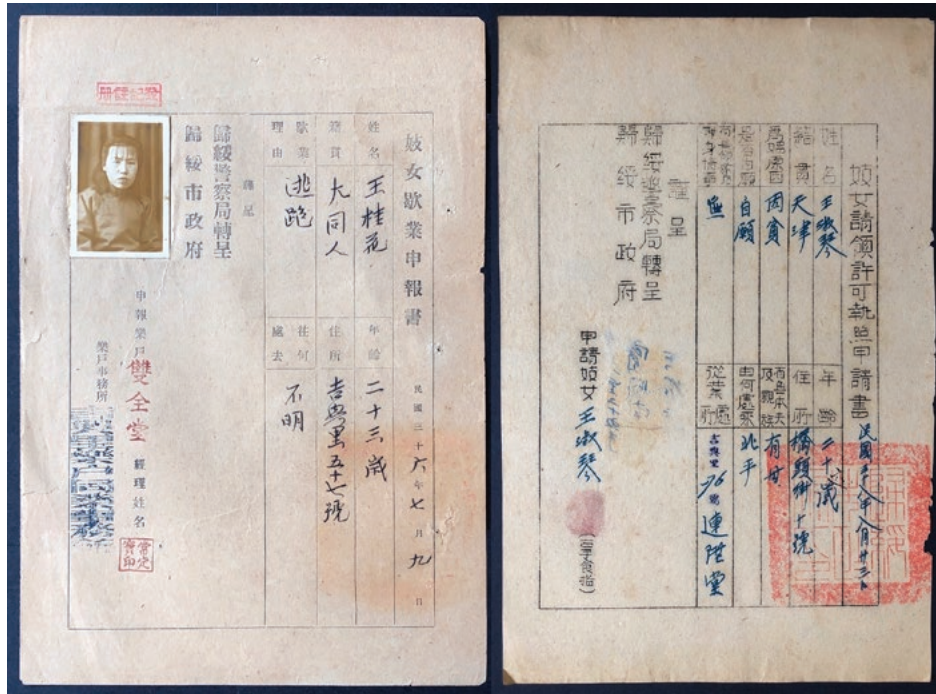 妓女歇業申報書
民國三十六年七月九日
姓名 王桂花 年齡 二十三歲
籍貫 大同人 住所 吉興里五十七號
歇業理由 逃跑 往何處去 不明
謹呈
歸綏警察局轉呈
歸綏市政府
申報樂戶 雙全堂 經理姓名
樂戶事務所
妓女請領許可執照申請書
民國三十八年八月廿三日
姓名 王淑琴 年齡 二十歲
籍貫 天津 住所 橋頭街十號
為娼原因 因貧
有無本夫及親族 有母
是否自願 自願 由何處來 北平
無
從業處所 吉興里76號 連陞堂
謹呈
歸綏警察局轉呈
歸綏市政府
申請妓女 王淑琴
(右手食指)